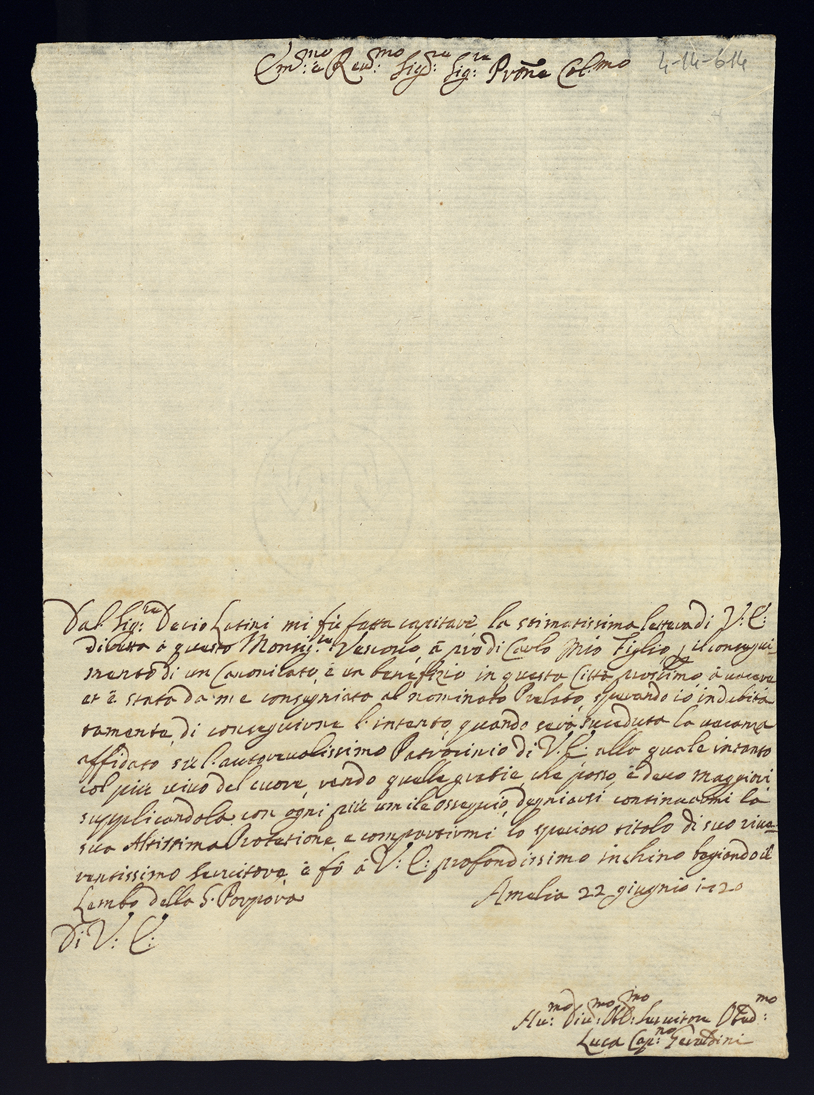 Em:mo e Rev:mo Sig:re Sig:re Prone Col:mo
4-14-614
Dal Sig:re Decio Latini mi fù fatta capitare la stimatissima lettera di V: E:
diretta à questo Monsig:re Vescovo à prò di Carlo mio Figlio, il consegui-
mento di un Canonicato, è un benefizio in questa Città prossimo à vacare
et è stata da me consegniata al nominato Prelato, sperando io indubita
tamente, di conseguirne l'intento, quando sarà succeduta la vacanza
affidato sù l'autorevolissimo Patrocinio di V: E: alla quale intanto
col più vivo del cuore, rendo quelle gratie che posso, è devo maggiori
supplicandola con ogni più umile ossequio degniarsi continuarmi la
sua Altissima Protetione, e compartirmi lo specioso titolo di suo rive-
rentissimo servitore, è fò à V: E: profondissimo inchino bagiando il
Lembo della S. Porpora
Amelia 22 giugnio 1720
Di V: E:
Hu:mo Div:mo Obl:mo Servitore Obed:mo
Luca Cap:no Geraldini